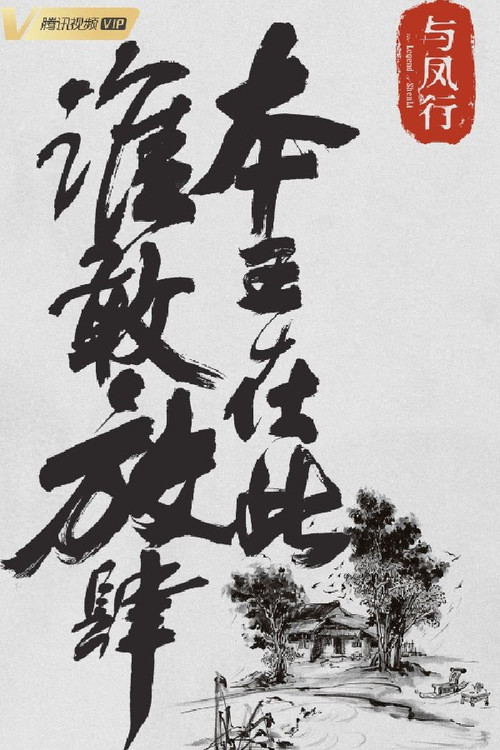 腾讯视频 VIP
与凤行
The Legend of ShenLi
本王在此
谁敢放肆